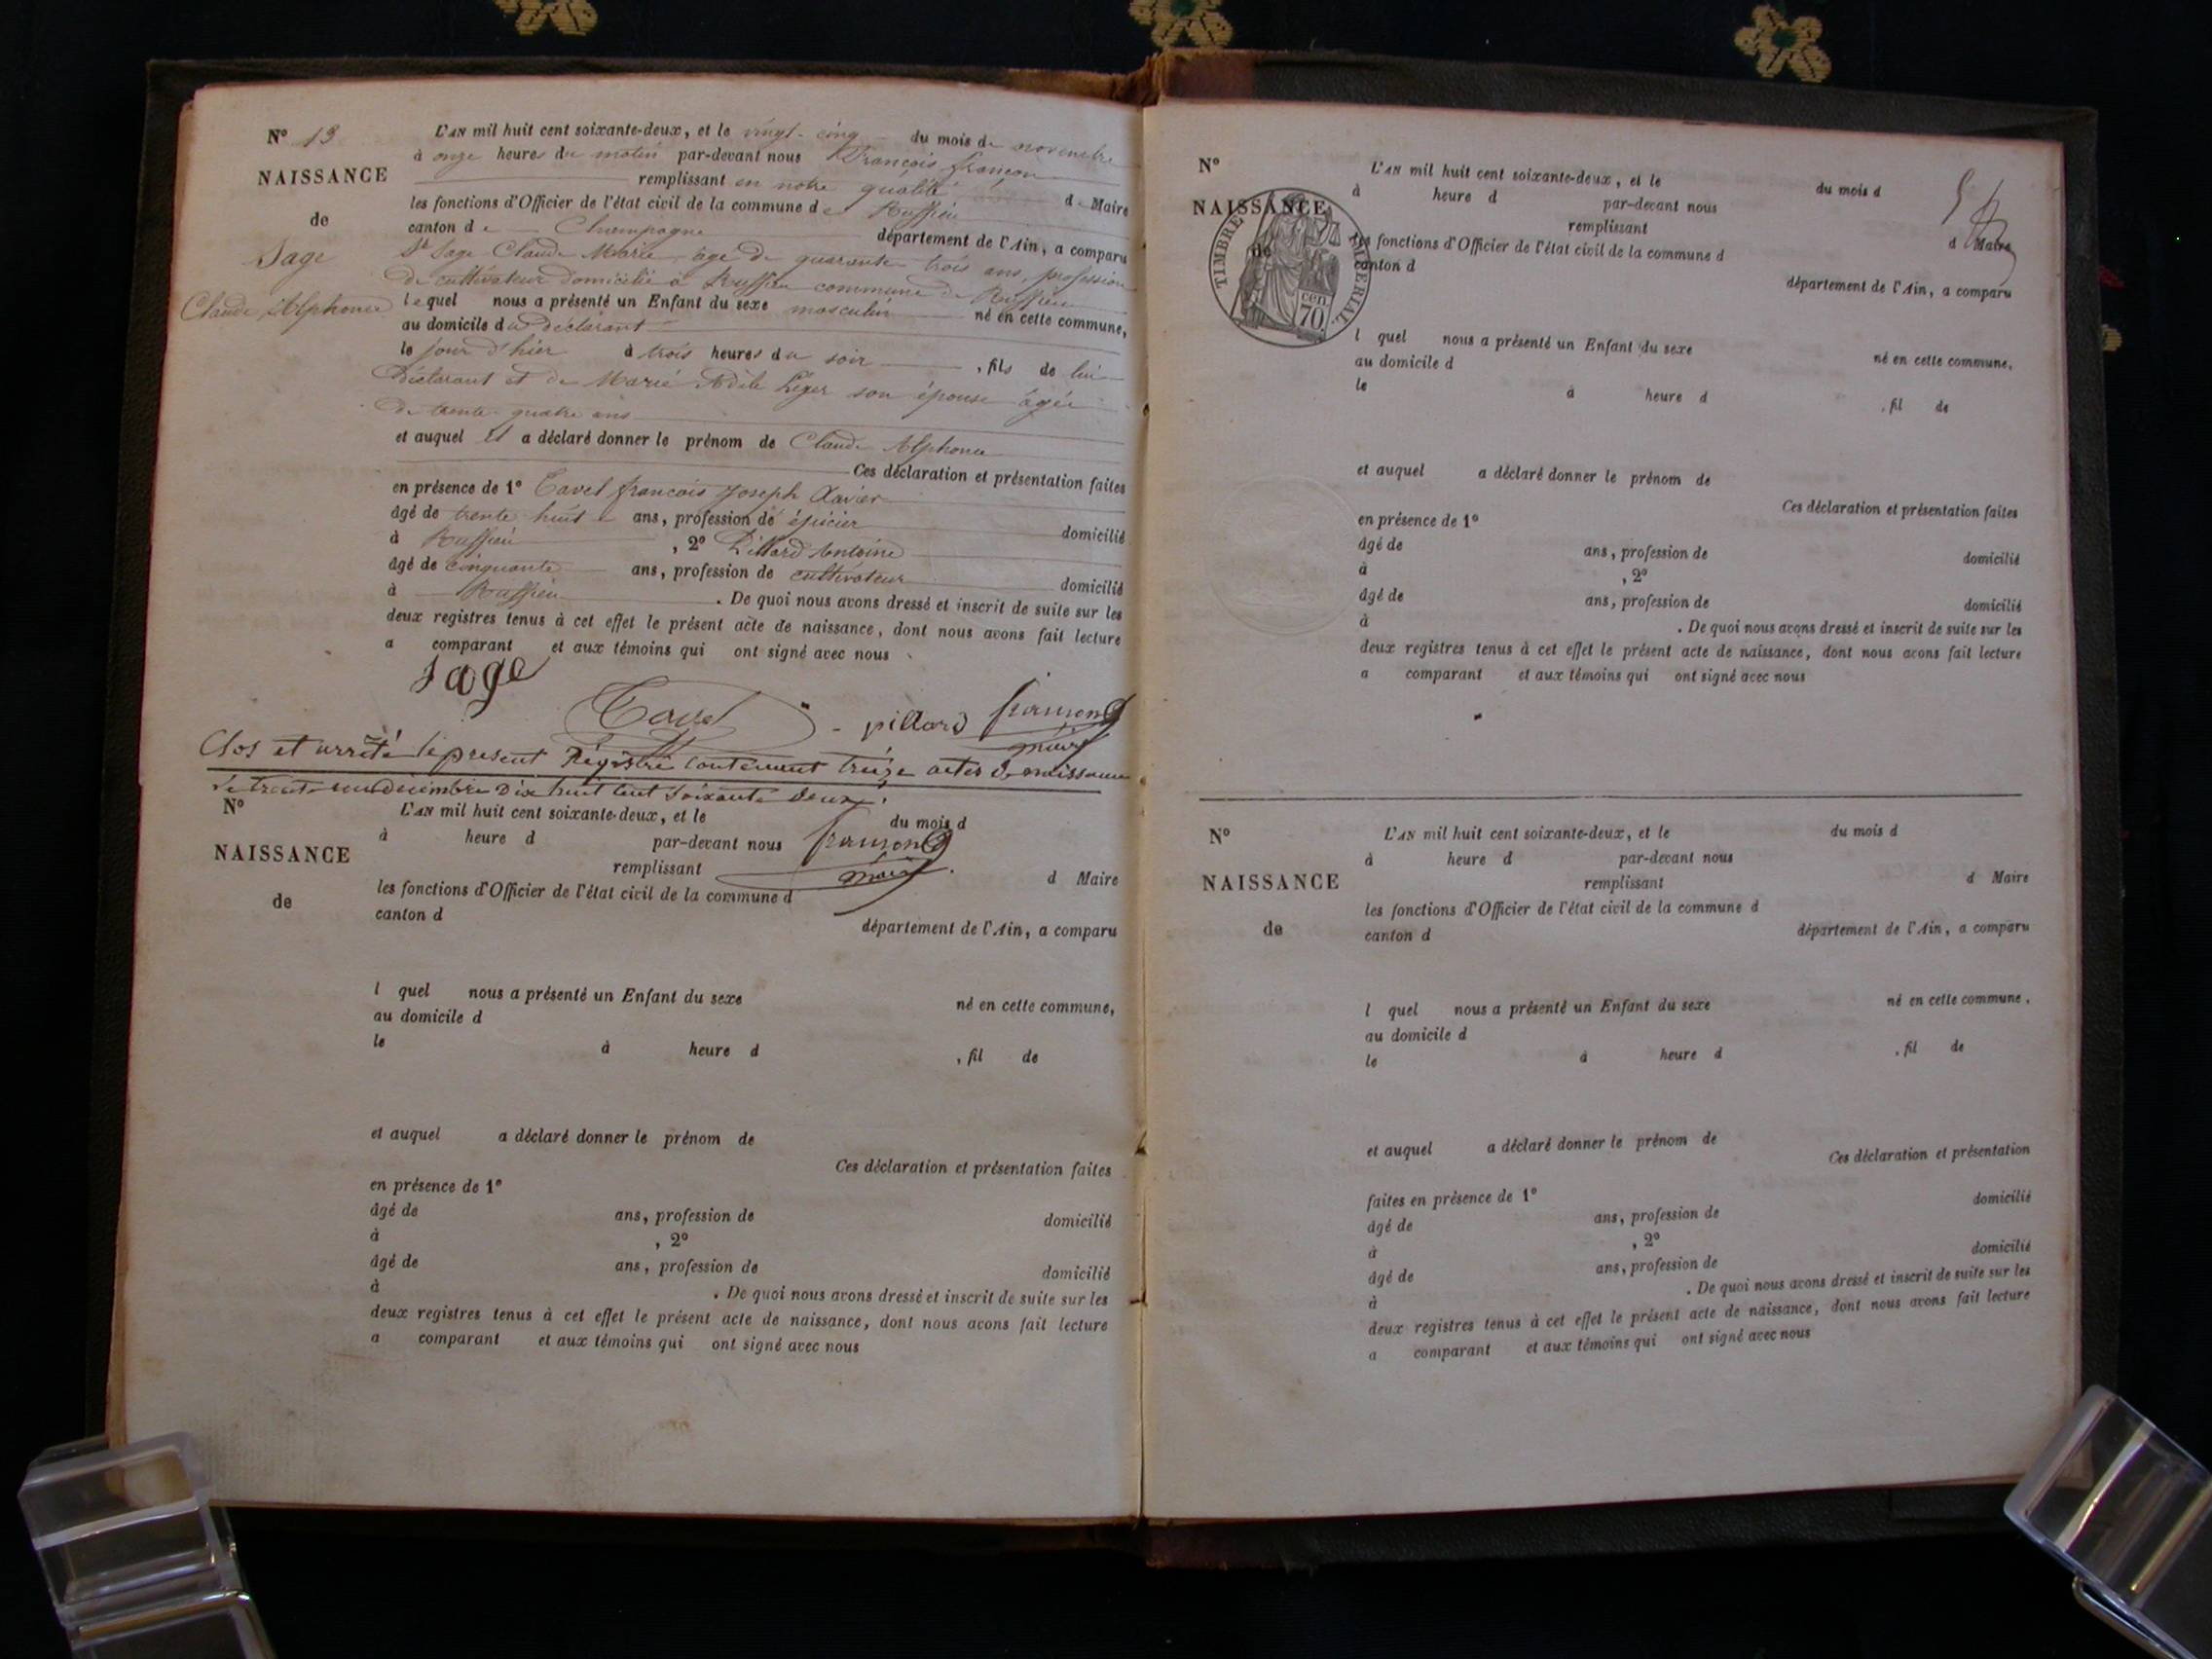 N° 13
NAISSANCE
de
Sage
Claude Alphonse
L'AN mil huit cent soixante-deux, et le vingt-cinq du mois de novembre
à onze heures du matin par-devant nous François françon
remplissant en notre qualité de Maire
les fonctions d'Officier de l'état civil de la commune de Ruffieu
canton de Champagne département de l'Ain, a comparu
Sr Sage Claude Marie, âgé de quarante trois ans, profession
de cultivateur domicilié à Ruffieu commune de Ruffieu
lequel nous a présenté un Enfant du sexe masculin né en cette commune,
au domicile du déclarant
le jour d'hier à trois heures du soir, fils de lui
Déclarant et de Marie Adèle Léger son épouse âgée
de trente-quatre ans
et auquel il a déclaré donner le prénom de Claude Alphonse
Ces déclaration et présentation faites
en présence de 1° Tavel françois Joseph Xavier
âgé de trente huit ans, profession de épicier domicilié
à Ruffieu, 2° Pillard Antoine
âgé de cinquante ans, profession de cultivateur domicilié
à Ruffieu. De quoi nous avons dressé et inscrit de suite sur les
deux registres tenus à cet effet le présent acte de naissance, dont nous avons fait lecture
a comparant et aux témoins qui ont signé avec nous
Sage
Tavel pillard françon
maire
Clos et arrêté le présent Régistre contenant treize actes de naissance
le trente un décembre Dix huit cent soixante deux.
françon
maire
N°
NAISSANCE
de
L'AN mil huit cent soixante-deux, et le du mois d
à heure d par-devant nous
remplissant d Maire
les fonctions d'Officier de l'état civil de la commune d
canton d département de l'Ain, a comparu
l quel nous a présenté un Enfant du sexe né en cette commune,
au domicile d
le à heure d , fil de
et auquel a déclaré donner le prénom de
Ces déclaration et présentation faites
en présence de 1°
âgé de ans, profession de domicilié
à , 2°
âgé de ans, profession de domicilié
à . De quoi nous avons dressé et inscrit de suite sur les
deux registres tenus à cet effet le présent acte de naissance, dont nous avons fait lecture
a comparant et aux témoins qui ont signé avec nous
N°
NAISSANCE
de
TIMBRE IMPERIAL
70 cen.
L'AN mil huit cent soixante-deux, et le du mois d
à heure d par-devant nous
remplissant d Maire
les fonctions d'Officier de l'état civil de la commune d
canton d département de l'Ain, a comparu
l quel nous a présenté un Enfant du sexe né en cette commune,
au domicile d
le à heure d , fil de
et auquel a déclaré donner le prénom de
Ces déclaration et présentation faites
en présence de 1°
âgé de ans, profession de domicilié
à , 2°
âgé de ans, profession de domicilié
à . De quoi nous avons dressé et inscrit de suite sur les
deux registres tenus à cet effet le présent acte de naissance, dont nous avons fait lecture
a comparant et aux témoins qui ont signé avec nous
N°
NAISSANCE
de
L'AN mil huit cent soixante-deux, et le du mois d
à heure d par-devant nous
remplissant d Maire
les fonctions d'Officier de l'état civil de la commune d
canton d département de l'Ain, a comparu
l quel nous a présenté un Enfant du sexe né en cette commune,
au domicile d
le à heure d , fil de
et auquel a déclaré donner le prénom de
Ces déclaration et présentation
faites en présence de 1° domicilié
âgé de ans, profession de
à , 2° domicilié
âgé de ans, profession de
à . De quoi nous avons dressé et inscrit de suite sur les
deux registres tenus à cet effet le présent acte de naissance, dont nous avons fait lecture
a comparant et aux témoins qui ont signé avec nous